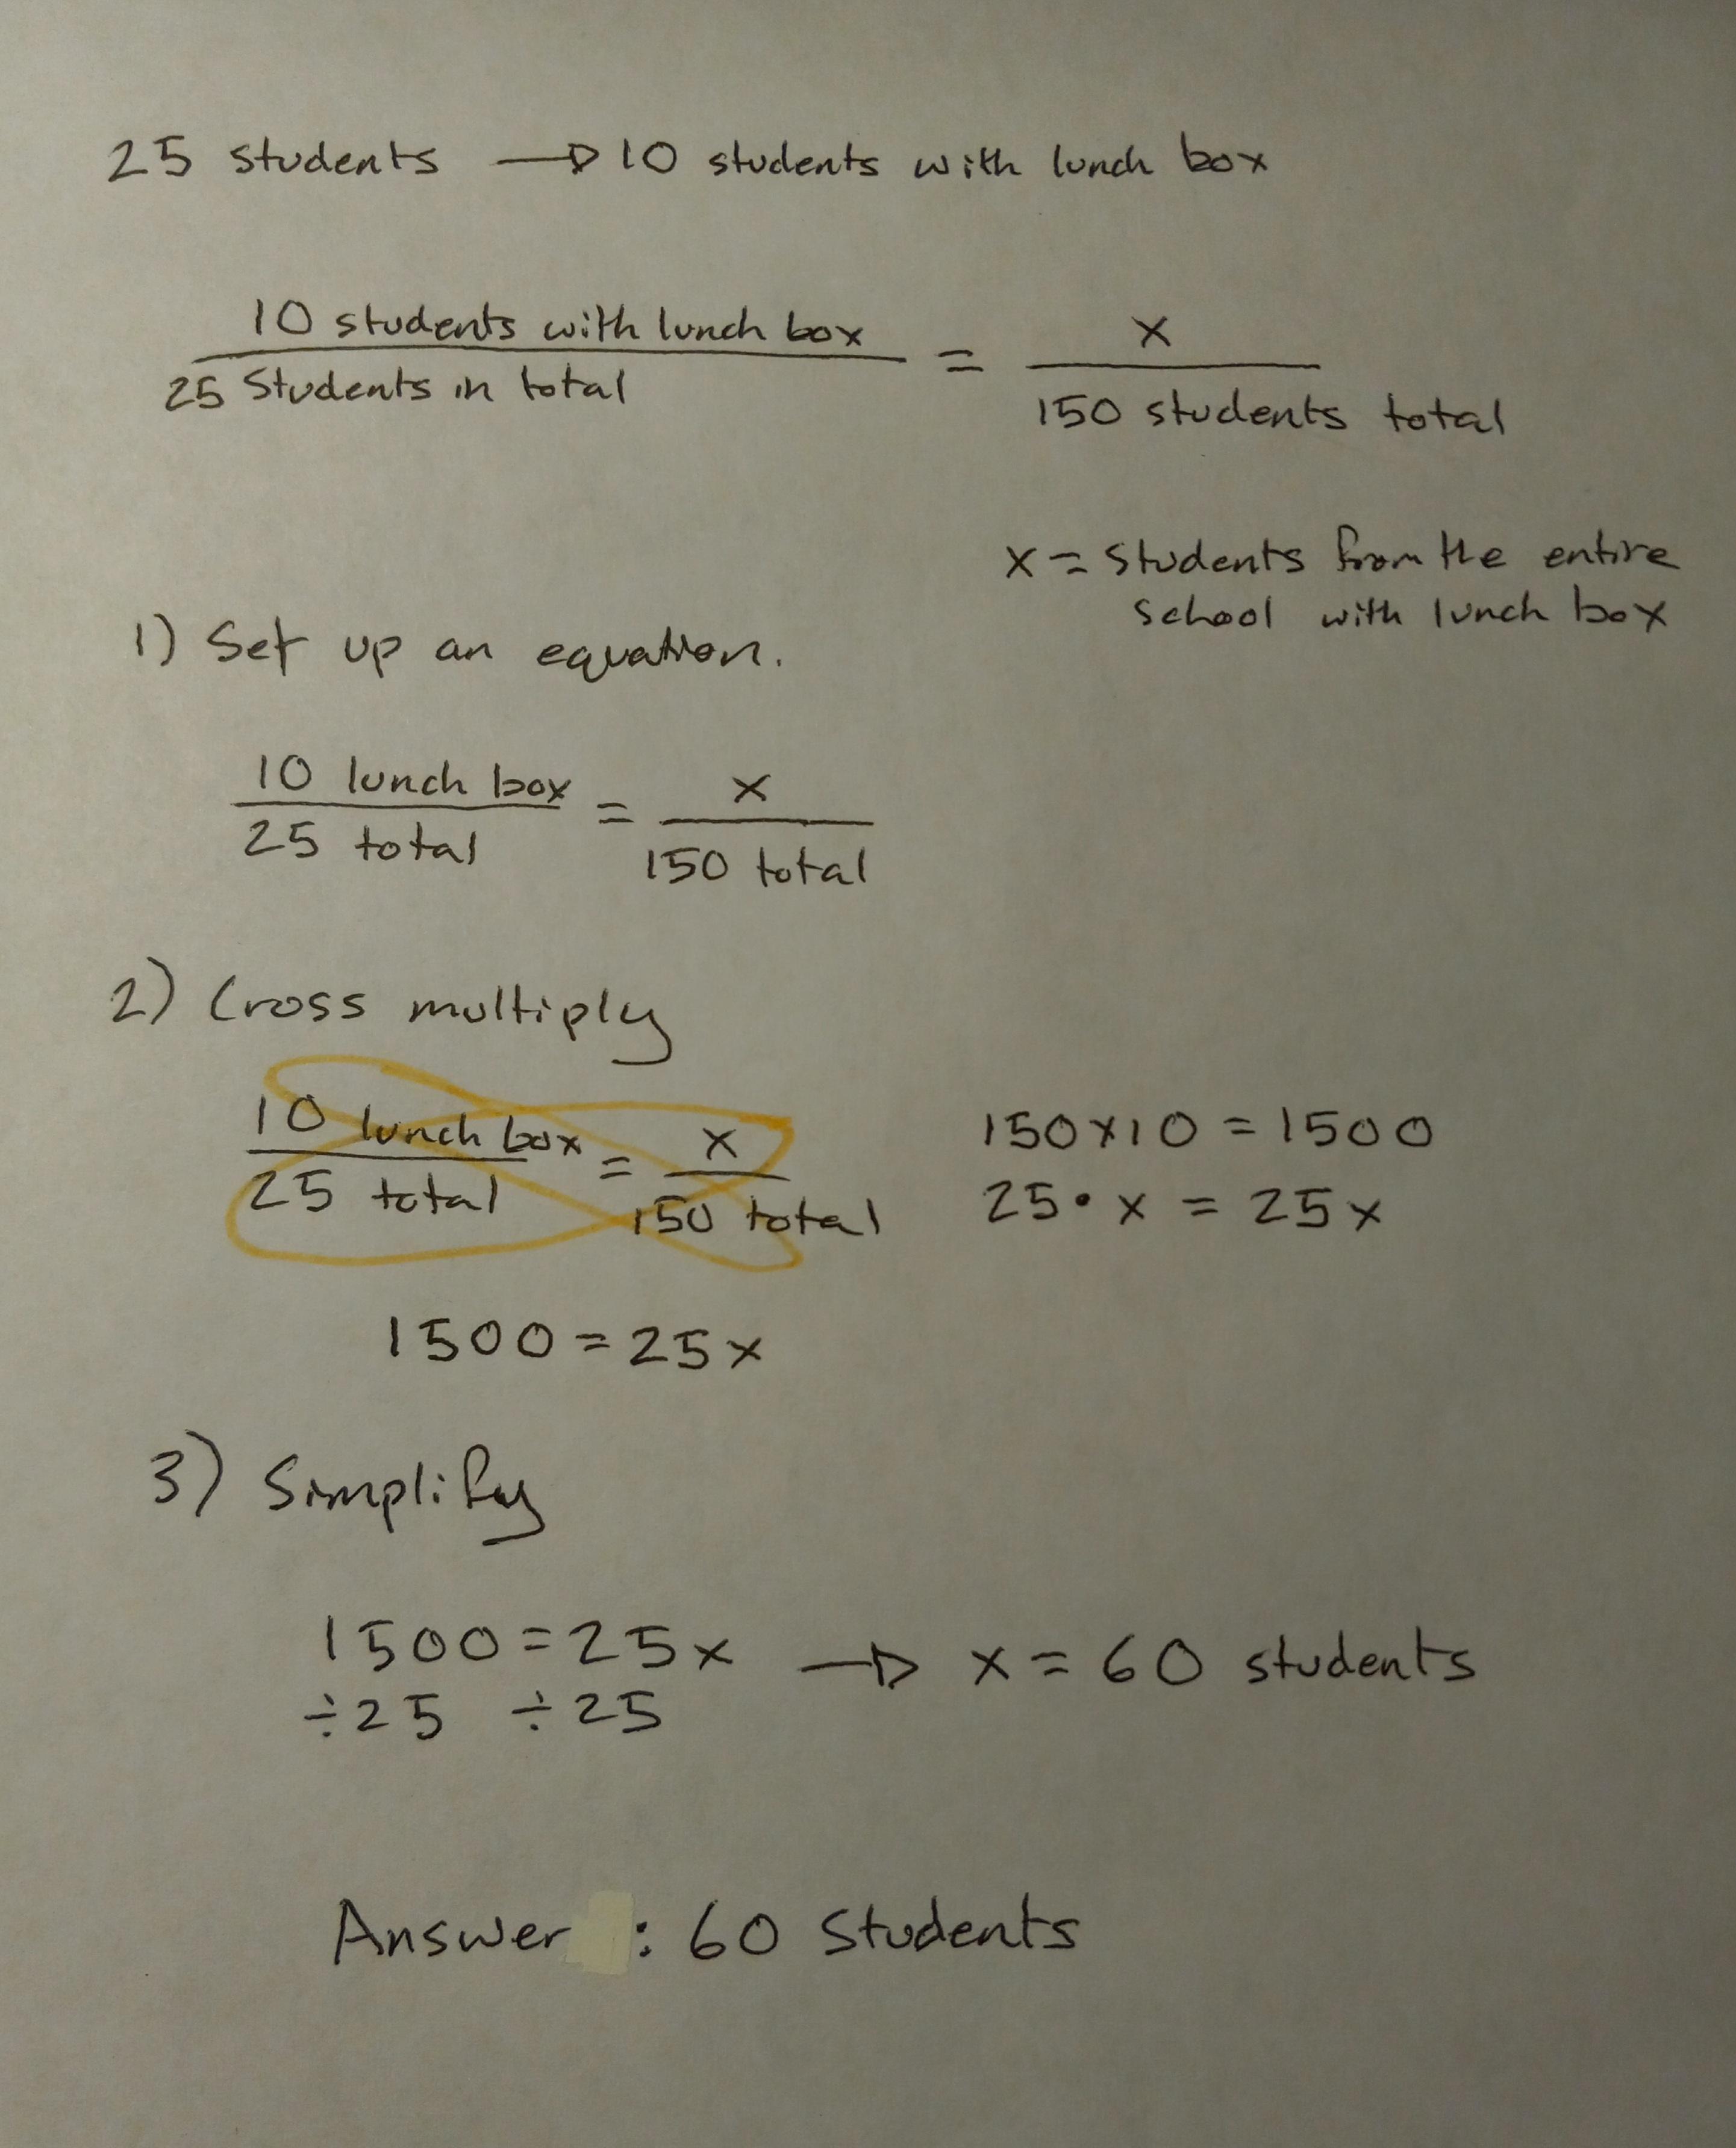 25 students → 10 students with lunch box
10 students with lunch box
25 Students in total
=
x
150 students total
x = Students from the entire
school with lunch box
1) Set up an equation.
10 lunch box
25 total
=
x
150 total
2) Cross multiply
10 lunch box
25 total
=
x
150 total
150x10 = 1500
25 • x = 25x
1500 = 25x
3) Simplify
1500 = 25x → x = 60 students
÷25 ÷25
Answer : 60 Students